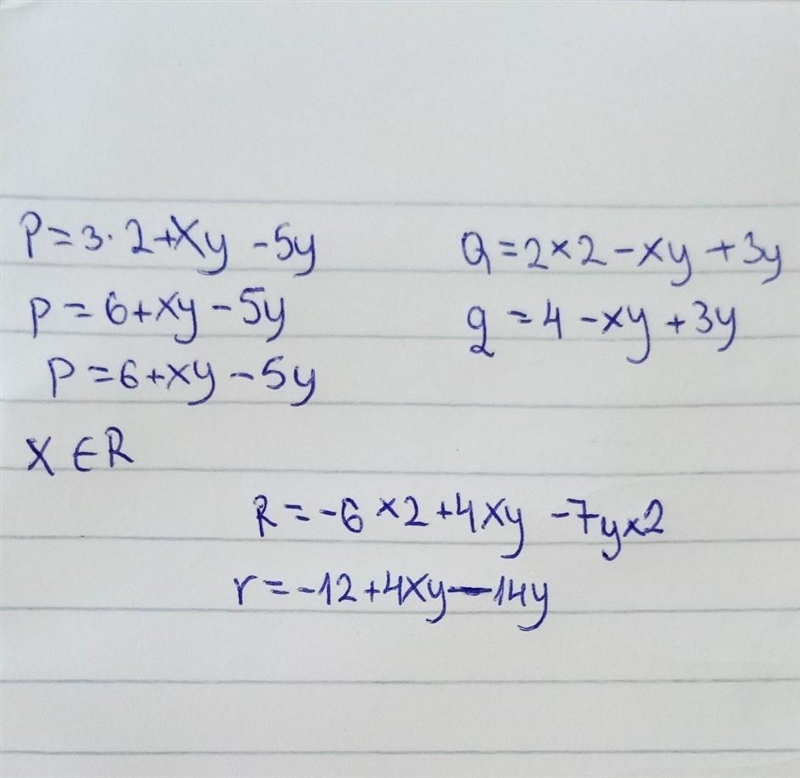 P=3·2+xy -5y
p=6+xy-5y
p=6+xy-5y
x∈R
Q=2×2-xy+3y
q=4-xy+3y
R=-6×2+4xy -7y×2
r=-12+4xy-14y